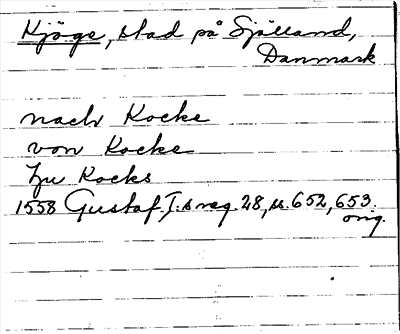 Kjöge, stad på Själland,
Danmark
nach Kocke
von Kocke
zu Kocks
1558 Gustaf I:s reg. 28, ss. 652, 653.
orig.